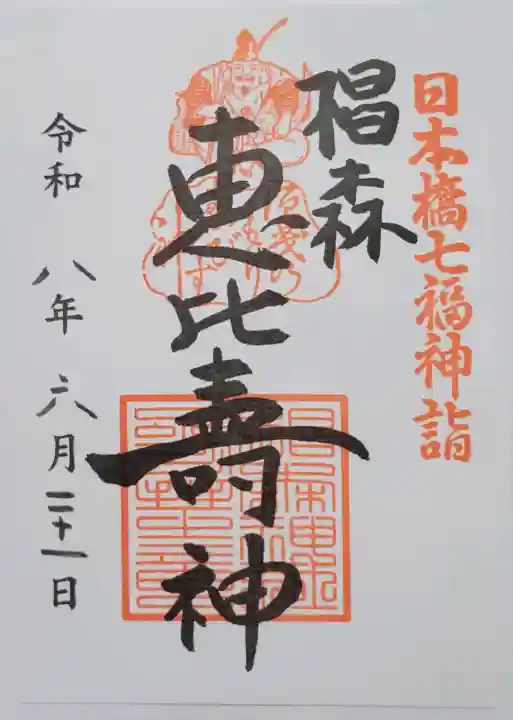 日本橋七福神詣
椙森
恵比壽神
令和 八年 六月二十一日